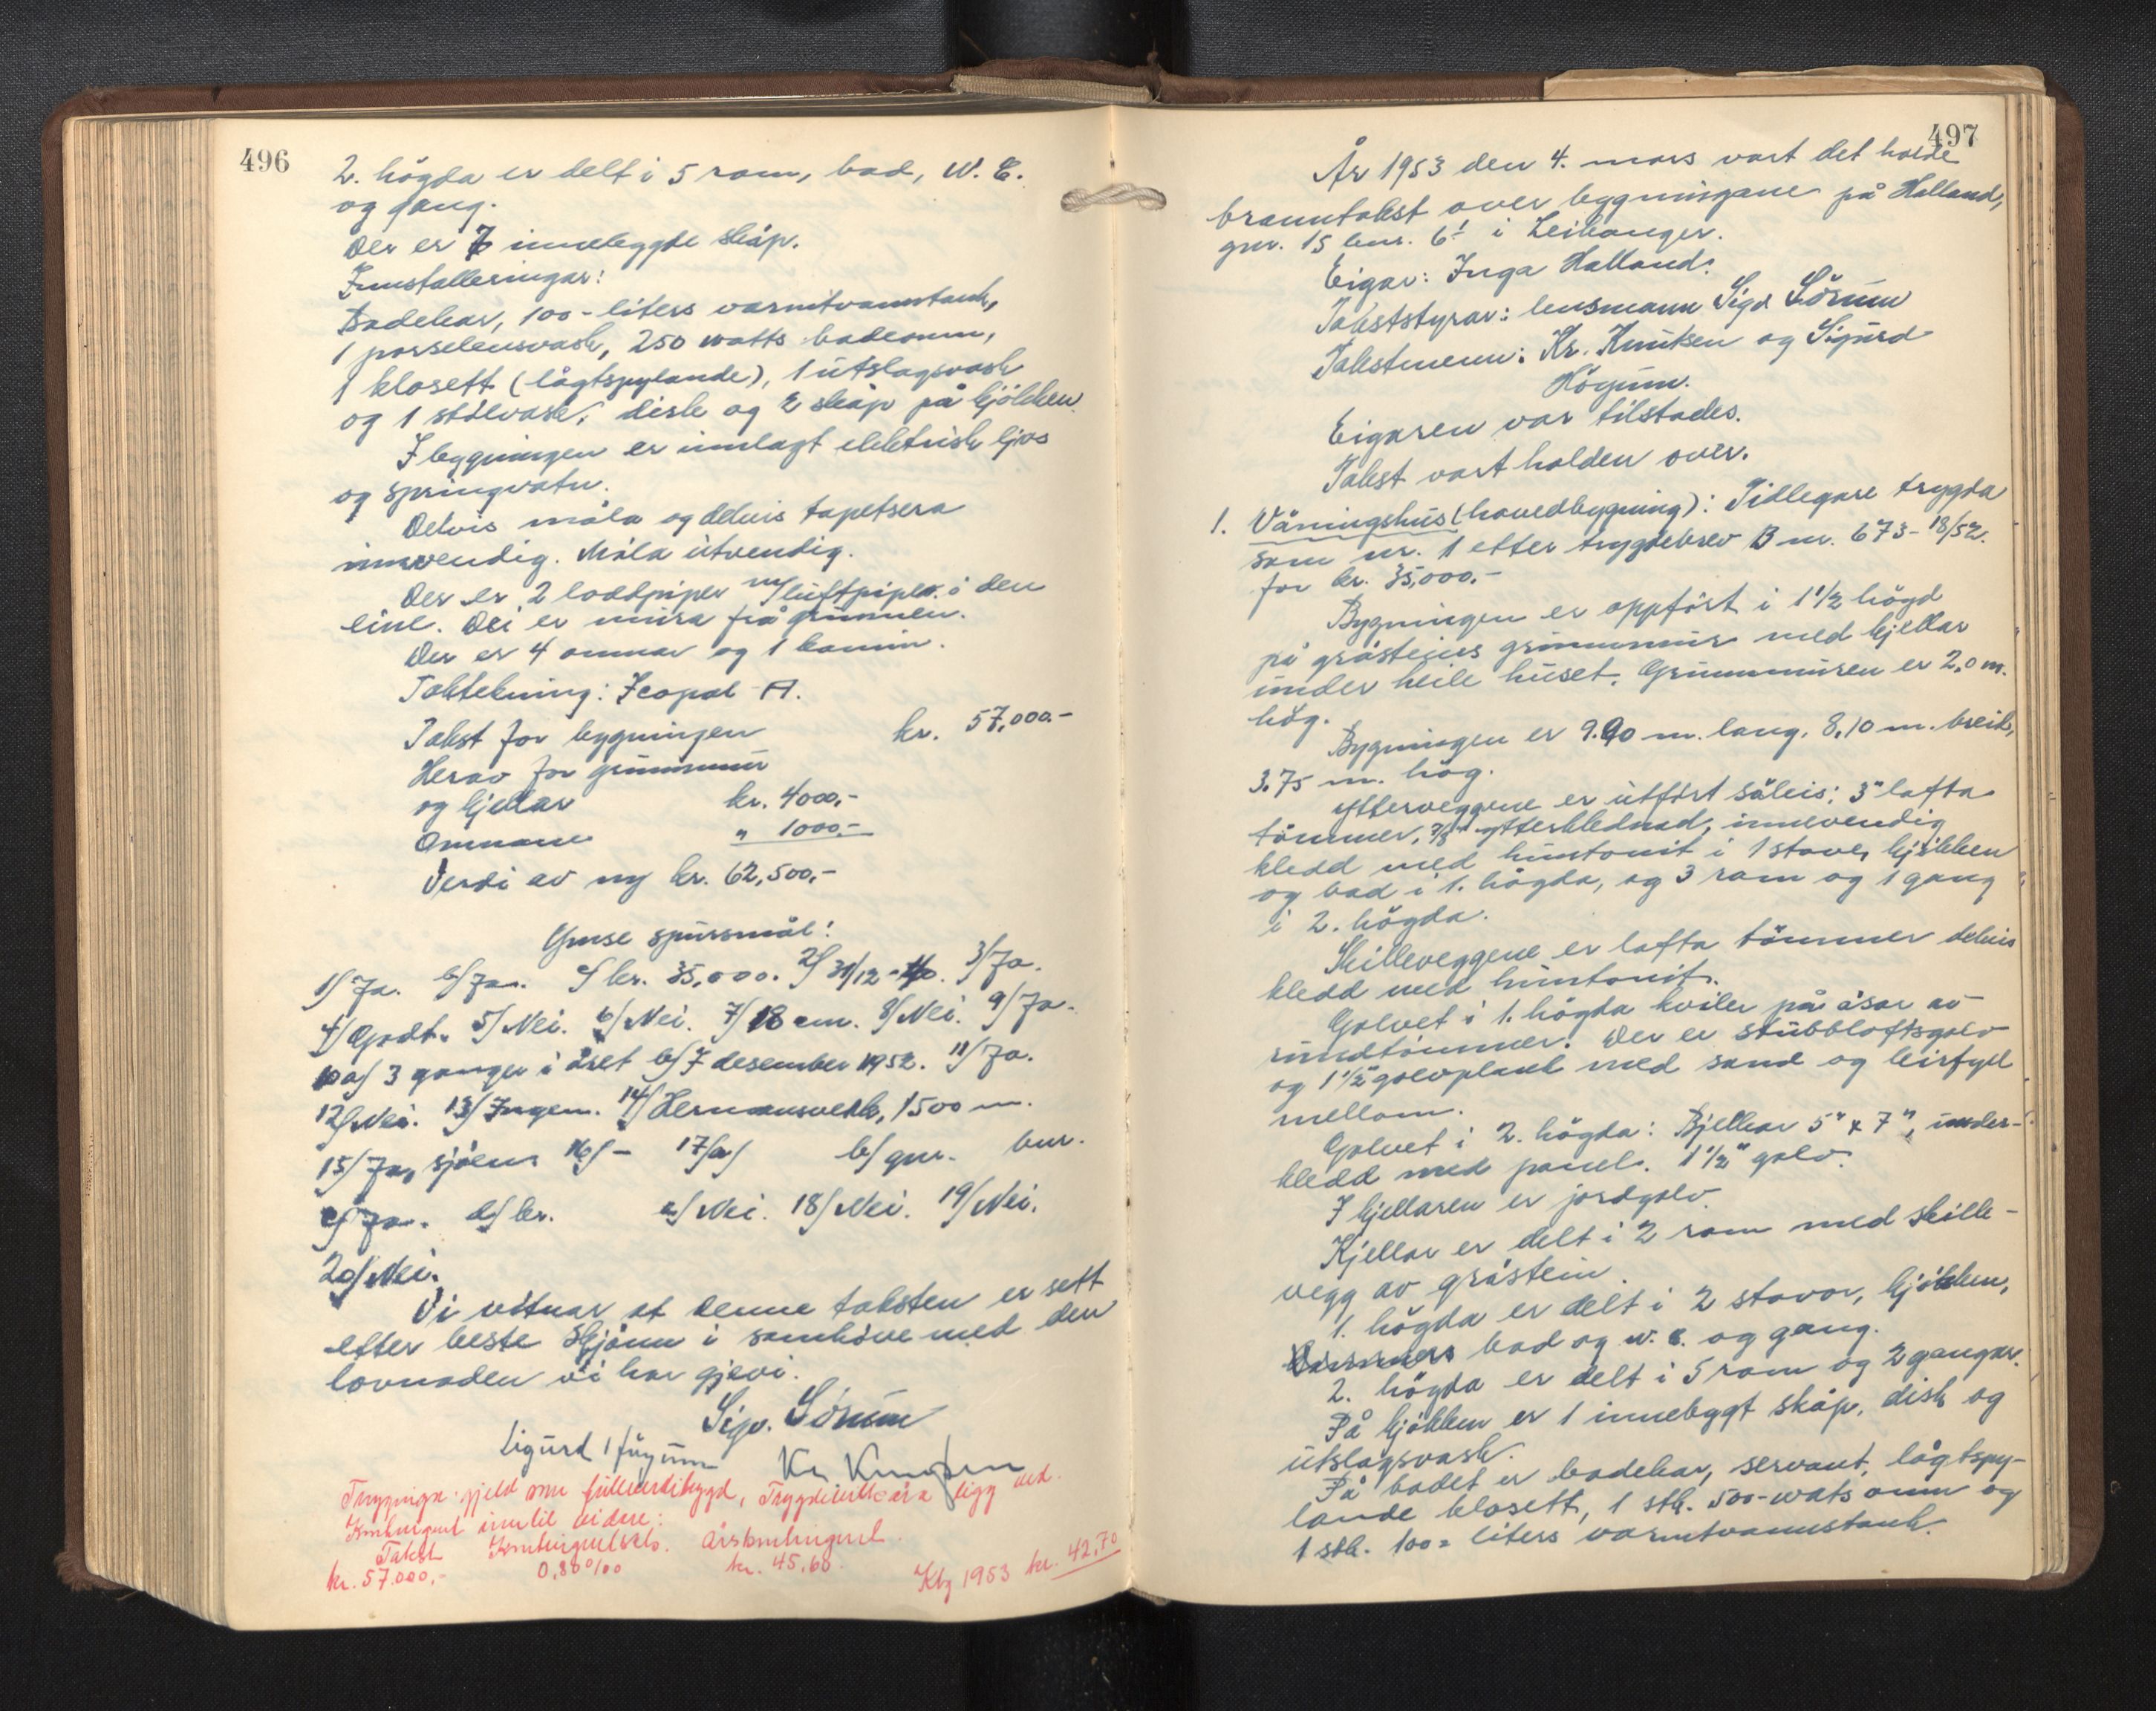 496
2. högda er delt i 5 rom, bad, W. C.
og gang.
Der er 7 innebygde skåp.
Innstalleringar:
Badekar, 100-liters varmtvannstank,
1 porselensvask, 250 watts badeomn,
1 klosett (lågtspylande), 1 utslagsvask
og 1 stålvask, disk og 2 skåp på kjökken.
I bygningen er innlagt elektrisk ljos
og springvatn.
Delvis måla og delvis tapetsera
innvendig. Måla utvendig.
Der er 2 loddpiper m/luftpiper i den
eine. Dei er mura frå grunnen.
Der er 4 omnar og 1 kamin.
Taktekning: Icopal A.
Takst for bygningen kr. 57,000.-
Herav for grunnmur
og kjellar kr. 4000,-
Omnane " 1000,-
Verdi av ny kr. 62,500,-
Ymse spursmål:
1/ Ja. b/ Ja. c/ kr. 35,000. 2/ 31/12-40. 3/ Ja.
4/ Godt. 5/ Nei. 6/ Nei. 7/ 18 cm. 8/ Nei. 9/ Ja.
10 a/ 3 ganger i året b/ 7 desember 1952. 11/ Ja.
12/ Nei. 13/ Ingen. 14/ Hermansverk, 1500 m.
15/ Ja, sjöen 16/ - 17/a/ b/ gnr. bnr.
c/ Ja. d/ kr. e/ Nei. 18/ Nei. 19/ Nei.
20/ Nei.
Vi vitnar at denne taksten er sett
etter beste skjönn i samhöve med den
lovnaden vi har gjevi.
Sigv. Sörum
Sigurd Högum Kr Knutsen
Trygginga gjeld som fullverditrygd, Trygdevilkåra ligg ved.
Kontingent inntil vidare:
Takst Kontingentsats. Årskontingent.
kr. 57.000,- 0,80 0/00 kr. 45,60. Ktg 1953 kr. 42,70
497
År 1953 den 4. mars vart det halde
branntakst over bygningane på Halland,
gnr. 15 bnr. 6 i Leikanger.
Eigar: Inga Halland.
Takststyrar: lensmann Sigv. Sörum
Takstmenn: Kr. Knutsen og Sigurd
Högum.
Eigaren var tilstades.
Takst vart halden over.
1. Våningshus (hovedbygning): Tidlegare trygda
som nr. 1 etter trygdebrev B nr. 673-18/52.
for kr. 35,000.-
Bygningen er oppfört i 1 1/2 högd
på gråsteins grunnmur med kjellar
under heile huset. Grunnmuren er 2,0 m.
hög.
Bygningen er 9.90 m. lang, 8,10 m. breid,
3.75 m. hög.
Ytterveggene er utfört såleis: 3" lafta
tömmer, 7/8" ytterklednad, innvendig
kledd med huntonit i 1 stove, kjökken
og bad i 1. högda, og 3 rom og 1 gang
i 2. högda.
Skilleveggene er lafta tömmer delvis
kledd med huntonit.
Golvet i 1. högda kviler på åsar av
rundtömmer. Der er stubbloftsgolv
og 1 1/2" golvplank med sand og leirfyll
mellom.
Golvet i 2. högda: Bjelkar 5" x 7", under-
kledd med panel. 1 1/2" golv.
I kjellaren er jordgolv.
Kjellar er delt i 2 rom med skille-
vegg av gråstein.
1. högda er delt i 2 stovor, kjökken,
bad og w. c. og gang.
2. högda er delt i 5 rom og 2 gangar.
På kjökken er 1 innebygt skåp, disk og
utslagsvask.
På badet er badekar, servant, lågtspy-
lande klosett, 1 stk. 500-wats omn og
1 stk. 100= liters varmtvannstank.